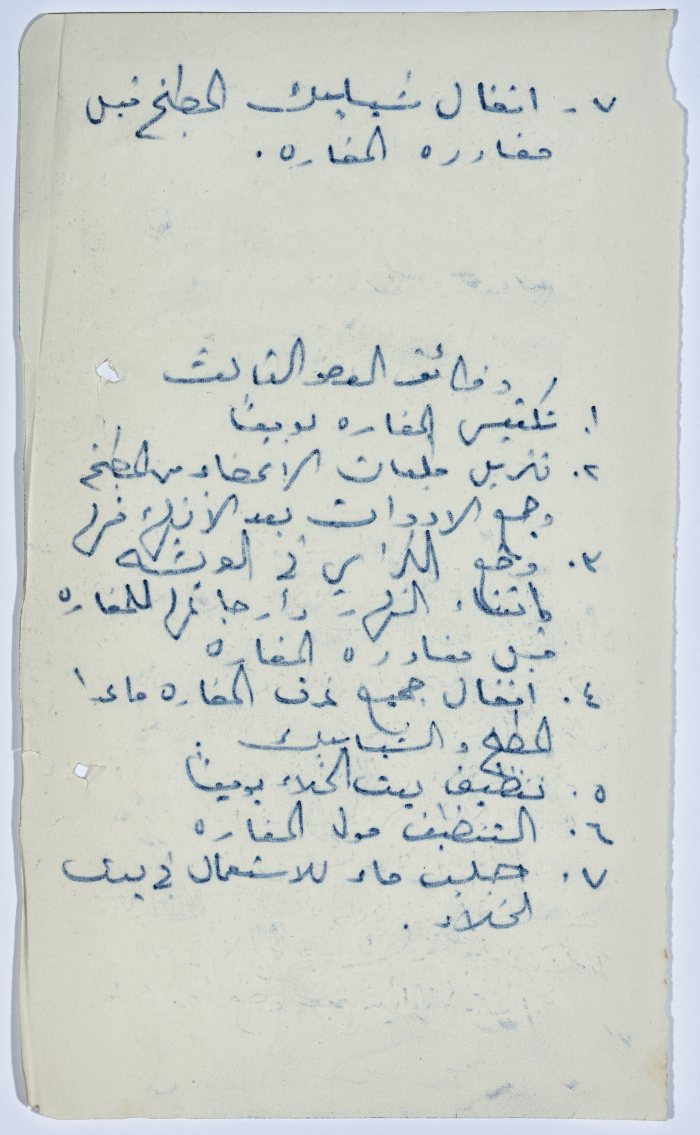 ٧- اقفال شبابيك المطبخ قبل
مغادره المغاره.
وظائف العضو الثالث
١. تكنيس المغاره يوميًا
٢. تنزيل طلبات الاعضاء من المطبخ
وجمع الادوات بعد الأنتهاء منها
٣. وضع الكراسي في الورشه
اثناء النهار وارجاعها للمغاره
قبل مغادره المغاره
٤. اقفال جميع غرف المغاره ماعدا
المطبخ والشبابيك.
٥. تنظيف بيت الخلاء يوميًا
٦. التنظيف حول المغاره
٧. جلب ماء للاستعمال في بيت
الخلاء.